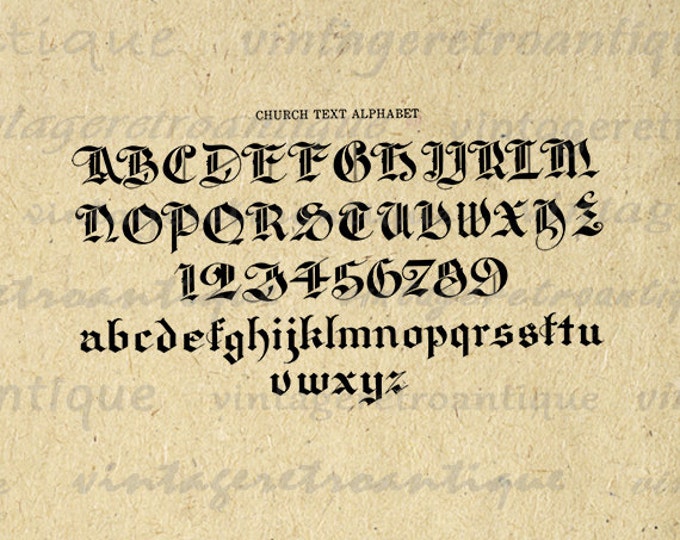 antique vintageretroantique
vintage retroantique
CHURCH TEXT ALPHABET
ABCDEFGHIJKLM
NOPQRSTUVWXYZ
123456789
abcdefghijklmnopqrssttu
vwxyz
antique vintageretroantique
vintageretroantique